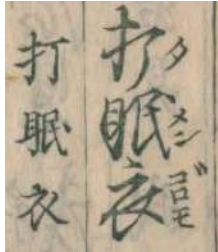 打眠衣
タメンゴロモ
打眠衣